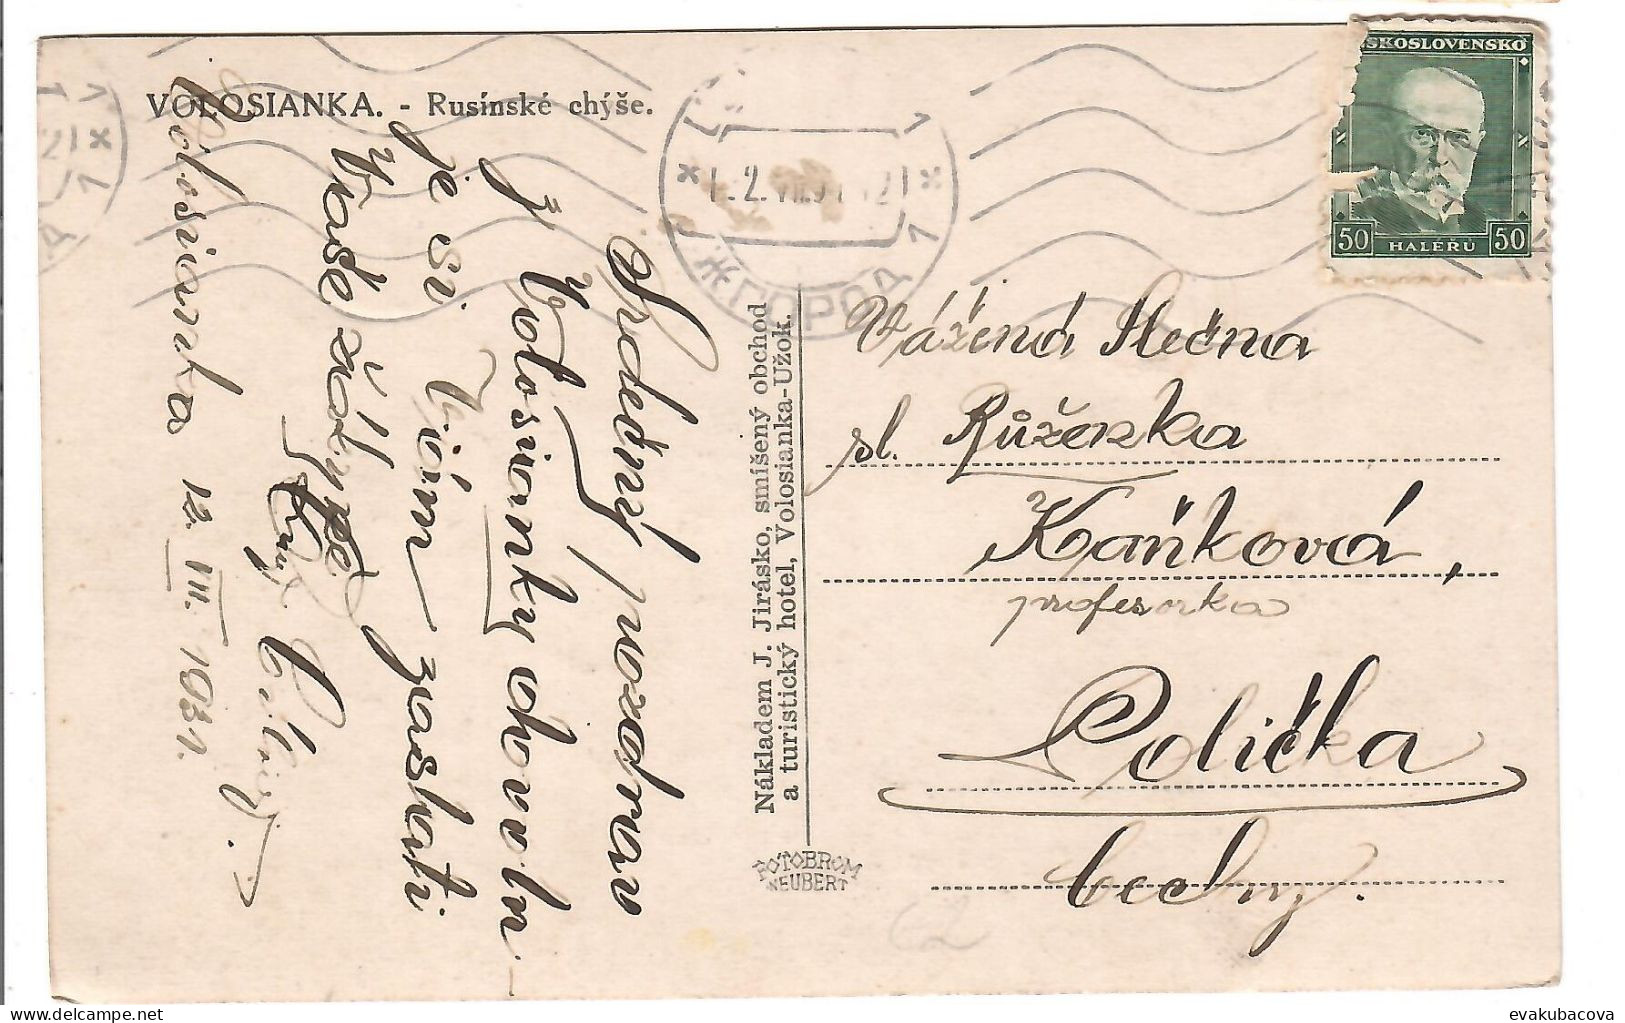 VOLOSIANKA. - Rusínské chýše.
ESKOSLOVENSKO
50 HALÉŘŮ 50
1.-2.VII.31
УЖГОРОД 1
Srdečný pozdrav
z Volosianky dovoluje si Vám zaslati
Váš
Volosianka 12. VII. 1931.
Nákladem J. Jirásko, smíšený obchod
a turistický hotel, Volosianka-Užok.
FOTOBROM
NEUBERT
Vážená slečna
sl. Růženka
Kaňková,
profesorka
Polička
Čechy.
62
evakubacova